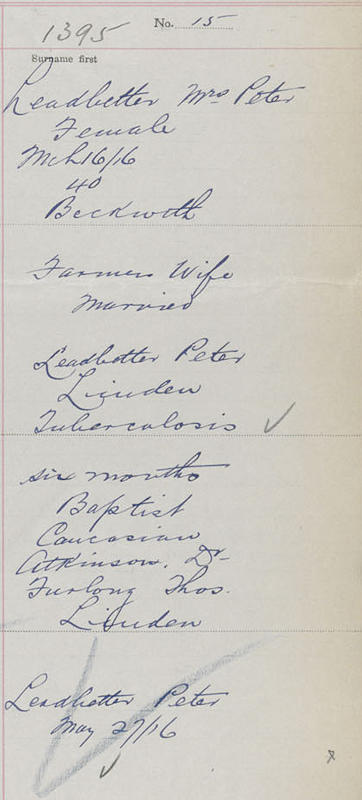 1395
No. 15
Surname first
Leadbetter Mrs Peter
Female
Mch 16/16
40
Beckwith
Farmers Wife
Married
Leadbetter Peter
Linden
Tuberculosis ✓
six months
Baptist
Caucasian
Atkinson, Dr
Furlong Thos.
Linden
Leadbetter Peter
May 27/16
✓